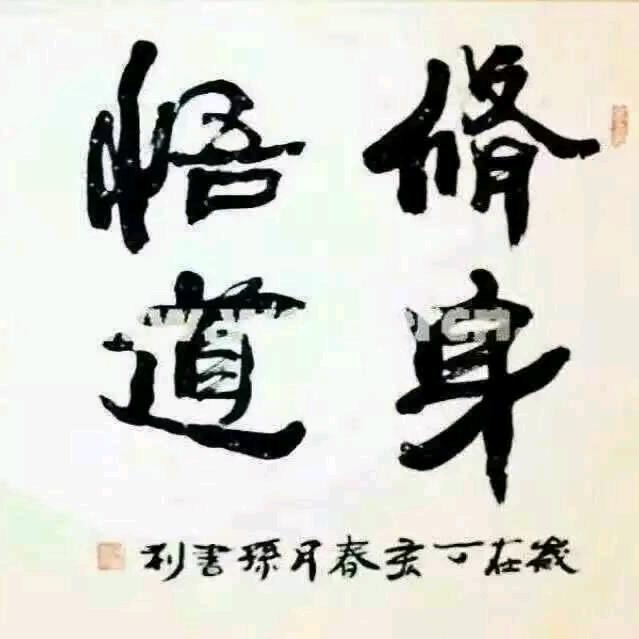 脩身
悟道
歲在丁亥春月孫書利